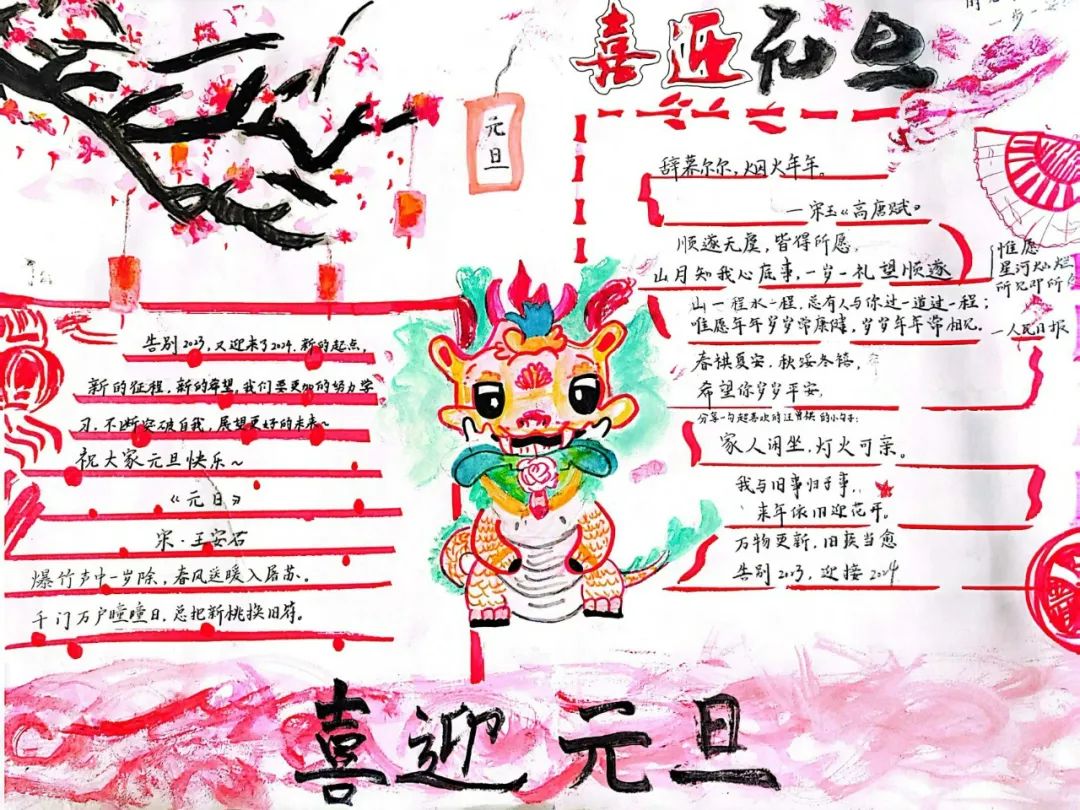 喜迎元旦
一步一
元旦
告别2023,又迎来了2024,新的起点,
新的征程,新的希望,我们要更加的努力学
习,不断突破自我,展望更好的未来~
祝大家元旦快乐~
《元日》
宋·王安石
爆竹声中一岁除,春风送暖入屠苏。
千门万户曈曈日,总把新桃换旧符。
辞暮尔尔,烟火年年。
—宋玉《高唐赋》
顺遂无虞,皆得所愿,
山月知我心底事,一岁一礼望顺遂
山一程水一程,总有人与你过一道过一程;
惟愿年年岁岁常康健,岁岁年年常相见。
惟愿
星河灿烂
所见即所
—人民日报
春祺夏安,秋绥冬禧,
希望你岁岁平安,
分享一句超喜欢的汪曾祺的小句子:
家人闲坐,灯火可亲。
我与旧事归于事,
来年依旧迎花开。
万物更新,旧疾当愈
告别2023,迎接2024
喜迎元旦